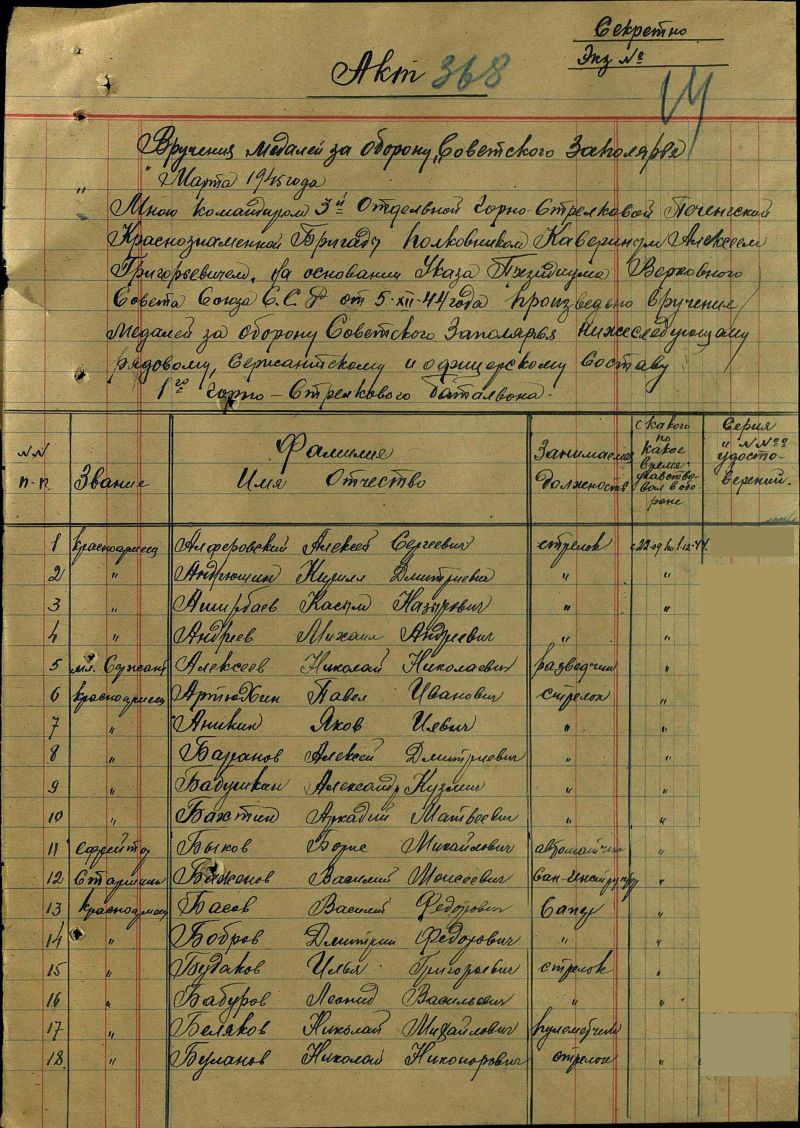 Секретно
Экз №
Акт 368
Вручения медалей за оборону „Советского Заполярья
„ " Марта 1945 года
Мною командиром 3й Отдельной Горно-Стрелковой Печенгской
Краснознаменной Бригады Полковником Кавериным Алексеем
Григорьевичем, на основании Указа Президиума Верховного
Совета Союза С.С.Р от 5-XII-44 года произведено вручение
медалей за оборону Советского Заполярья нижеследующему
рядовому, сержантскому и офицерскому составу
1го Горно-Стрелкового батальона.
NN п-п. Звание Фамилие Имя Отчество Занимаемая должность с какого по какое время участвовал в обороне Серия и NNоо удостоверений.
1 Красноармеец Алферовский Алексей Сергеевич стрелок с 22-09 по 1-12-44.
2 " Андрюшин Кирилл Дмитриевич " "
3 " Аширбаев Касым Назырович " "
4 " Андреев Михаил Андреевич " "
5 мл. Сержант Алексеев Николай Николаевич разведчик "
6 Красноармеец Артюхин Павел Иванович стрелок "
7 " Аникин Яков Илвич " "
8 " Баранов Алексей Дмитриевич " "
9 " Бабушкин Александр Кузмич " "
10 " Бахтин Аркадий Матвеевич " "
11 Ефрейтор Быков Борис Михайлович автоматчик "
12 Старшина Баженов Василий Моисеевич Сан-Инструктор "
13 Красноармеец Басов Василий Федорович "
14 " Бобров Дмитрий Федорович " "
15 " Будаков Илья Григорьевич стрелок "
16 " Бабуров Леонид Васильевич " "
17 " Беляков Николай Михайлович пулеметчик "
18. " Буланов Николай Никонорович стрелок "